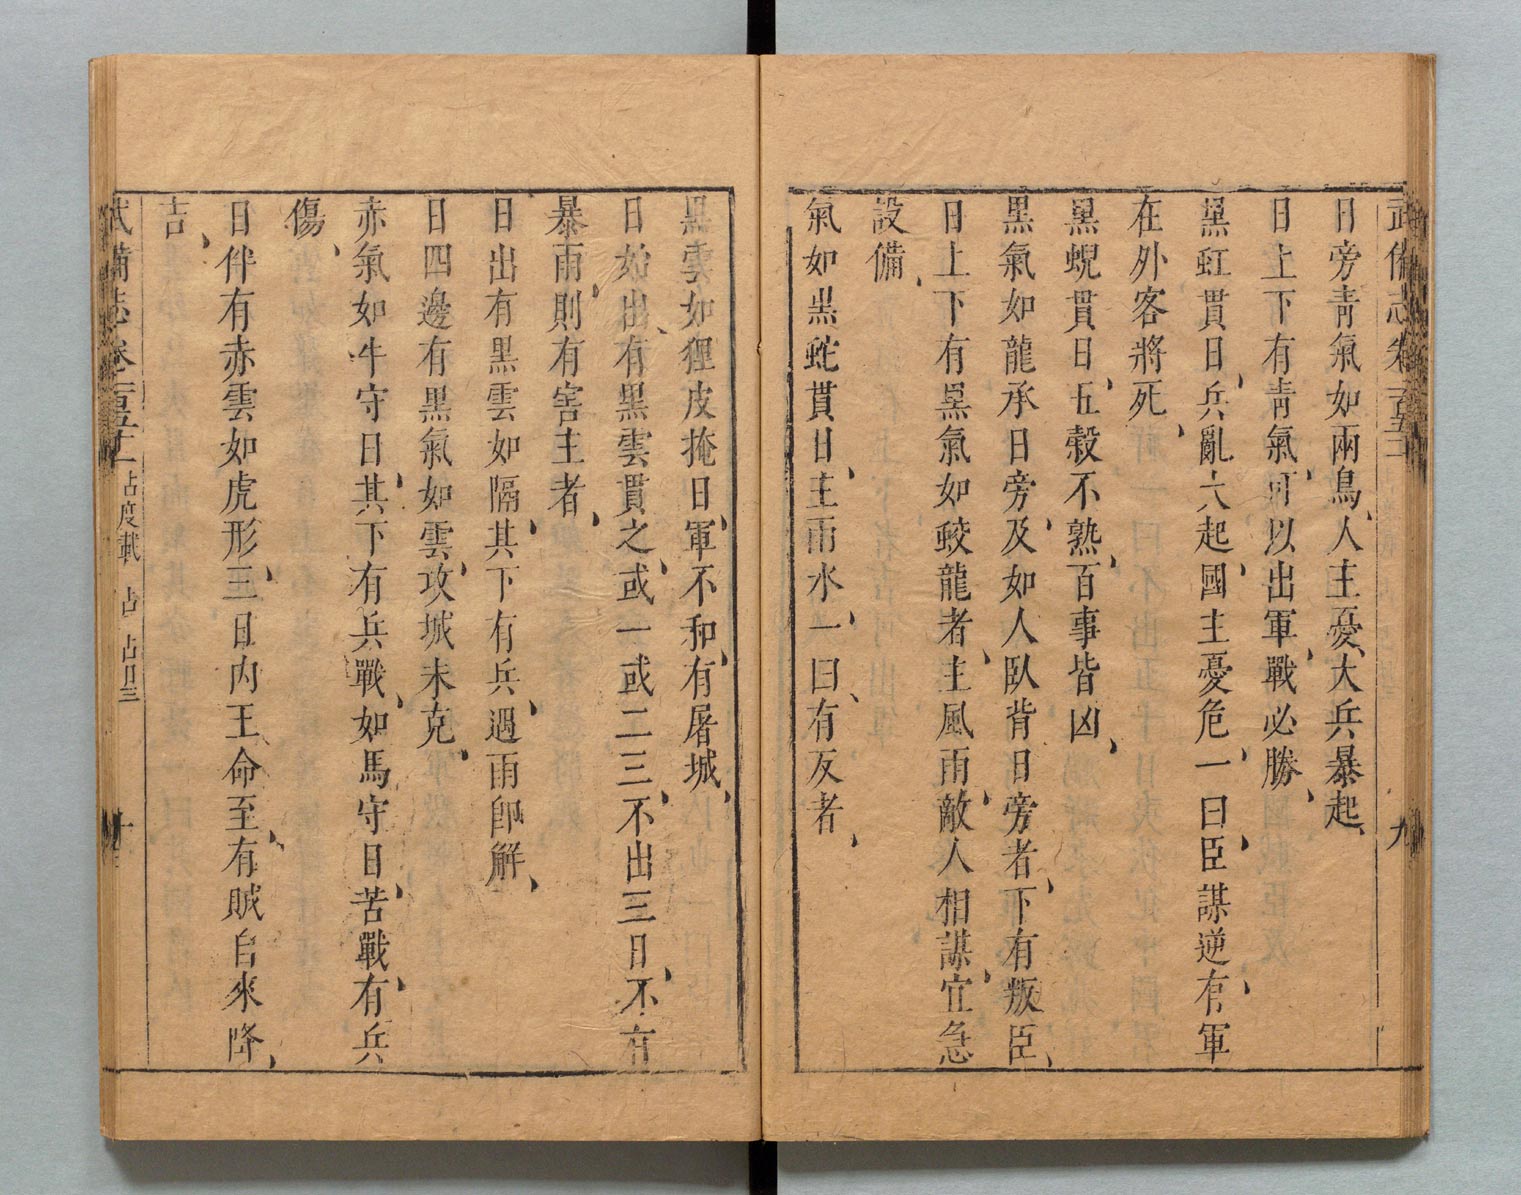 武備志卷一百五十一 九
日旁靑氣如兩鳥、人主憂、大兵暴起、
日上下有靑氣、可以出軍、戰必勝、
黑虹貫日、兵亂大起、國主憂危、一曰、臣謀逆、有軍
在外、客將死、
黑蜺貫日、五穀不熟、百事皆凶、
黑氣如龍承日旁、及如人臥背日旁者、下有叛臣、
日上下有黑氣如蛟龍者、主風雨、敵人相謀、宜急
設備、
氣如黑蛇貫日、主雨水、一曰、有反者、
黑雲如狸皮掩日、軍不和、有屠城、
日始出、有黑雲貫之、或一或二三、不出三日、不有
暴雨、則有害主者、
日出有黑雲如隔、其下有兵、遇雨卽解、
日四邊有黑氣如雲、攻城未克、
赤氣如牛守日、其下有兵戰、如馬守日、苦戰、有兵
傷、
日伴有赤雲如虎形、三日內王命至、有賊自來降、
吉、
武備志卷一百五十一 占度載 占 占日三 十